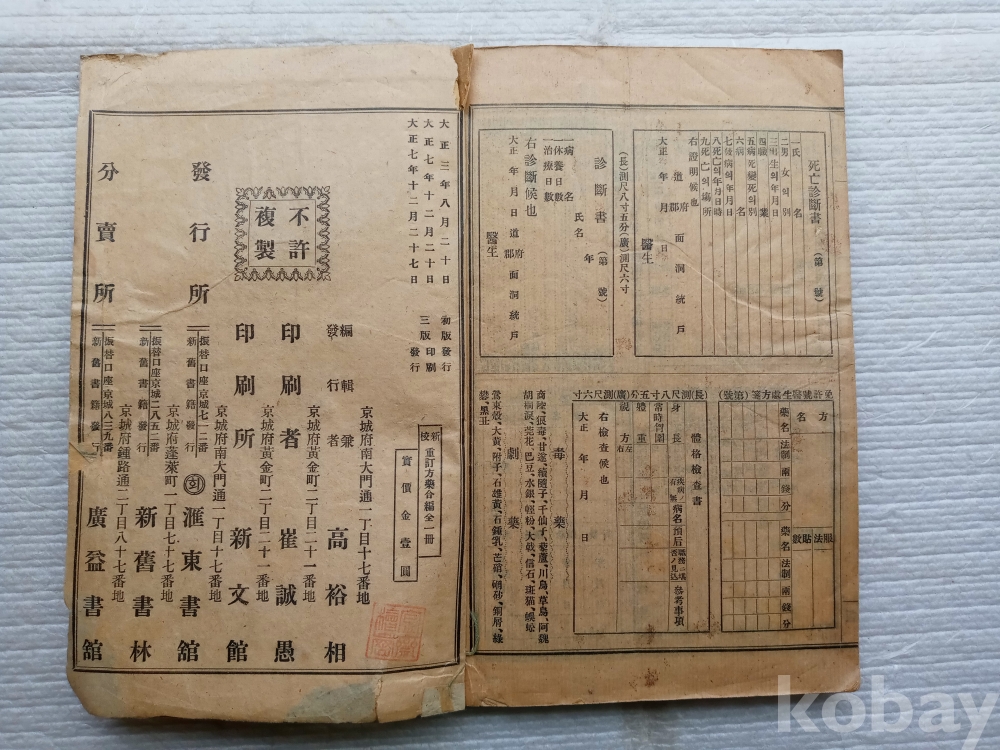 死亡診斷書 (第 號)
一氏 名
二男 女 의 別
三出 生 의 年 月 日
四職 業
五病 死 變 死 의 別
六病 名
七發 病 의 年 月 日
八死 亡 의 年 月 日 時
九死 亡 의 場 所
右證明候也
道 郡 府 面 洞 統 戶
大正 年 月 日
醫生
(長)測尺八寸五分(廣)測尺六寸
診斷書 (第 號)
氏名 年
一病 名
一休養日數
一治療日數
右診斷候也
道 郡 府 面 洞 統 戶
大正 年 月 日
醫生
免許號醫生處方箋(第 號)
方 名
藥名 法制 兩 錢 分
藥名 法制 兩 錢 分
貼數 服法
(長)測尺八寸五分(廣)測尺六寸
體格檢査書
身 長
體 重
常時胃圍
視 力 左右
病名
預后
參考事項
右檢査候也
大正 年 月 日
毒藥
商陸、狼毒、甘遂、續隨子、千仙子、藜蘆、川烏、草烏、阿魏
胡桐淚、芫花、巴豆、水銀、輕粉、大戟、信石、斑猫、蜈蚣
劇藥
鶯粟殼、大黃、附子、石雄黃、石鍾乳、芒硝、硇砂、銅屑、綠
礬、黑丑
大正三年八月二十日 初版發行
大正七年十二月二十日 三版印刷
大正七年十二月二十七日 三版發行
不許複製
新校 重訂方藥合編全一冊
實價金壹圓
京城府南大門通一丁目十七番地
編輯兼發行者 高裕相
京城府黃金町二丁目二十一番地
印刷者 崔誠愚
京城府黃金町二丁目二十一番地
印刷所 新文館
京城府南大門通一丁目十七番地
發行所 振替口座京城七一二番 新舊書籍發行 회 滙東書舘
京城府蓬萊町一丁目七十七番地
振替口座京城二八五二番 新舊書籍發行 新舊書林
京城府鍾路通二丁目八十七番地
分賣所 振替口座京城八三九番 新舊書籍發行 廣益書舘
kobay